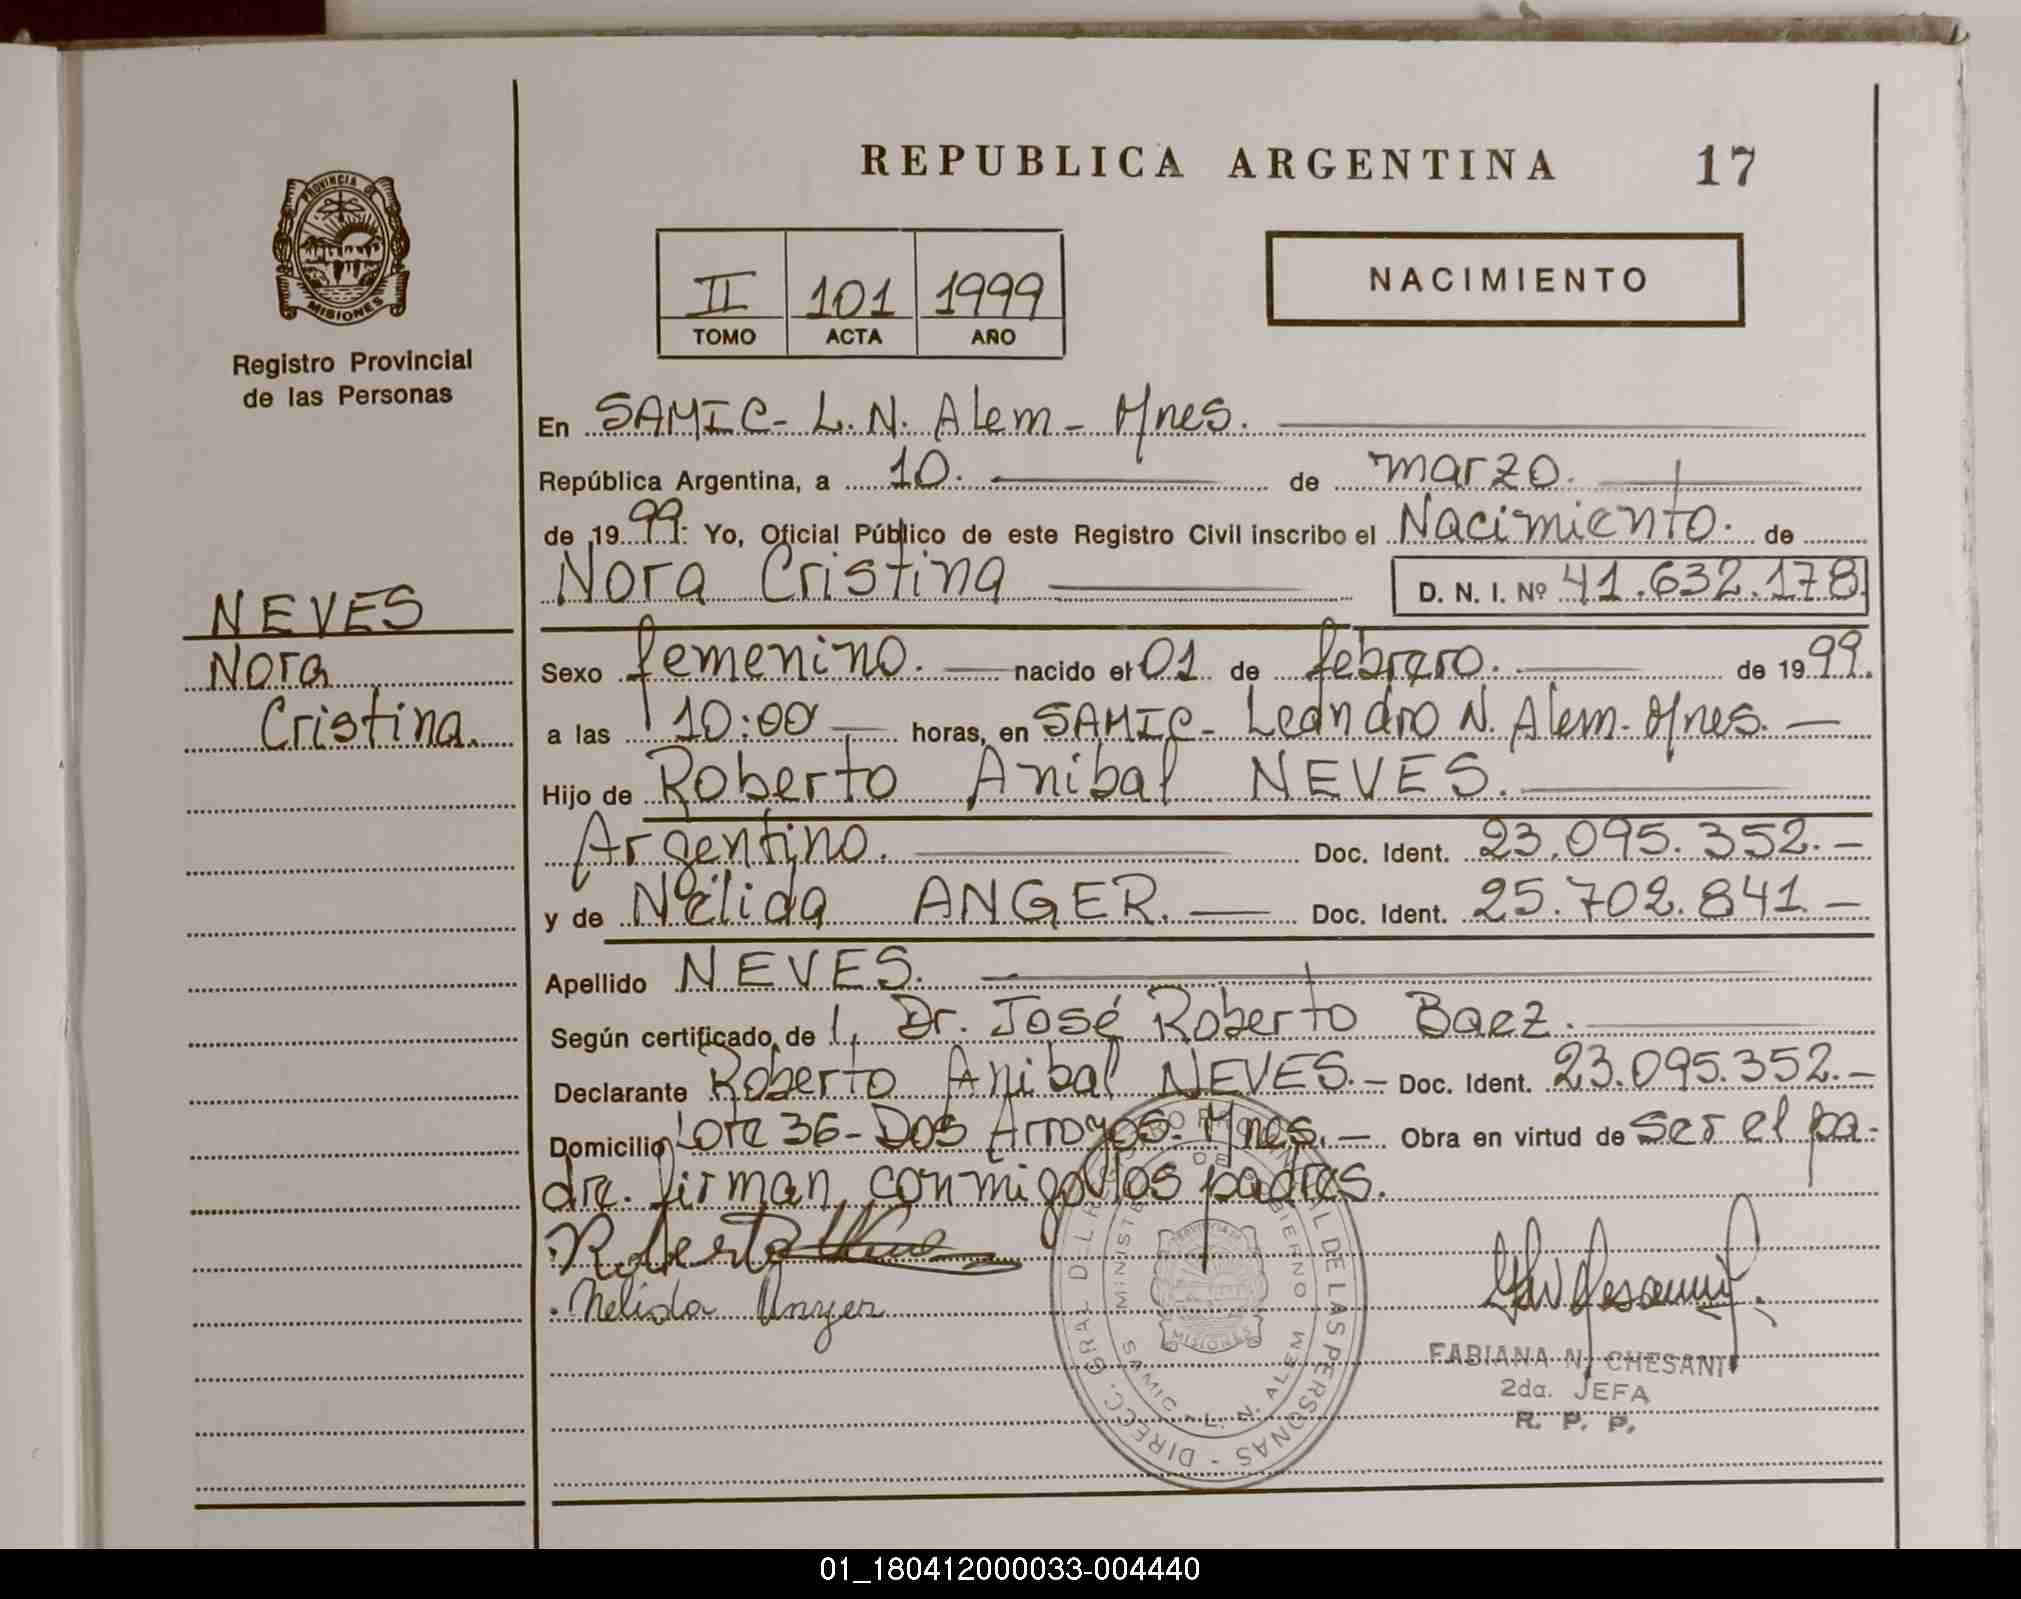 REPUBLICA ARGENTINA 17
PROVINCIA DE
MISIONES
Registro Provincial
de las Personas
II 101 1999
TOMO ACTA AÑO
NACIMIENTO
En SAMIC- L. N. Alem - Mnes.
República Argentina, a 10. de marzo.
de 1999. Yo, Oficial Público de este Registro Civil inscribo el Nacimiento. de
Nora Cristina D. N. I. Nº 41.632.178
NEVES
Nora
Cristina.
Sexo femenino. nacido el 01 de febrero. de 1999.
a las 10:00 horas, en SAMIC- Leandro N. Alem- Mnes. —
Hijo de Roberto Anibal NEVES.
Argentino. Doc. Ident. 23.095.352.—
y de Nélida ANGER. — Doc. Ident. 25.702.841.—
Apellido NEVES.
Según certificado de 1, Dr. José Roberto Baez.
Declarante Roberto Anibal NEVES.— Doc. Ident. 23.095.352.—
Domicilio Lote 36- Dos Arroyos- Mnes. — Obra en virtud de ser el pa-
dre. firman conmigo los padres.
Roberto
Nelida Anger
FABIANA N. CHESANI
2da. JEFA
R. P. P.
DIRECC. GRAL DEL REGISTRO PROVINCIAL DE LAS PERSONAS
MINISTERIO DE GOBIERNO
SAMIC - L. N. ALEM
PROVINCIA DE
MISIONES
01_180412000033-004440